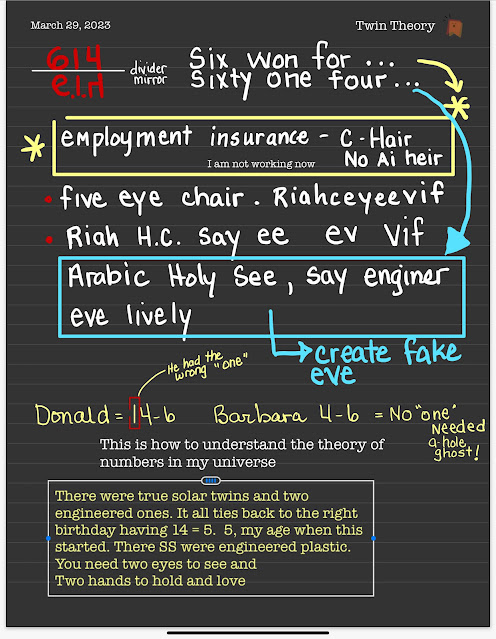 March 29, 2023
Twin Theory
614
divider
mirror
Six won for ...
Sixty one four ...
employment insurance - C-Hair
No Ai heir
I am not working now
five eye chair . Riahceyeevif
Riah H.C. say ee ev Vif
Arabic Holy See, say enginer
eve lively
create fake
eve
He had the
wrong "one"
Donald = 14-6
Barbara 4-6 = No "one"
Needed
a-hole
ghost!
This is how to understand the theory of
numbers in my universe
There were true solar twins and two
engineered ones. It all ties back to the right
birthday having 14 = 5. 5, my age when this
started. There SS were engineered plastic.
You need two eyes to see and
Two hands to hold and love